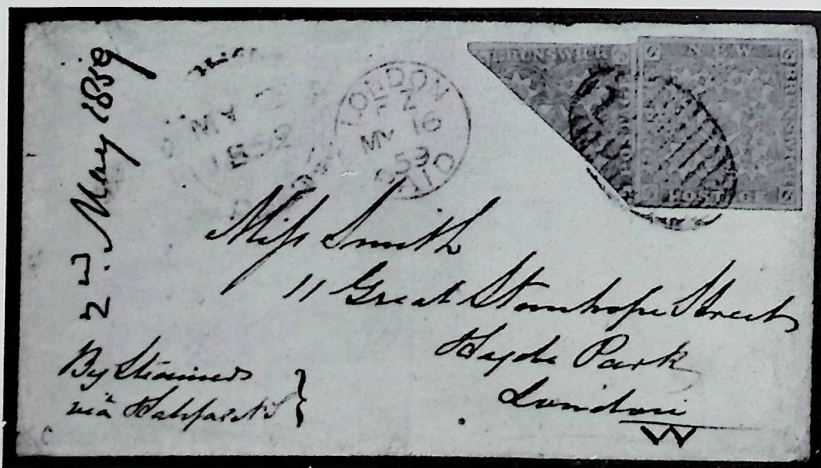 2nd. May 1859
MY
LONDON
FZ
MY 16
59
PAID
BRUNSWICK
NEW
BRUNSWICK
POSTAGE
Miss Smith
11 Great Stanhope Street
Hyde Park
London
W
By Steamer
via Halifax